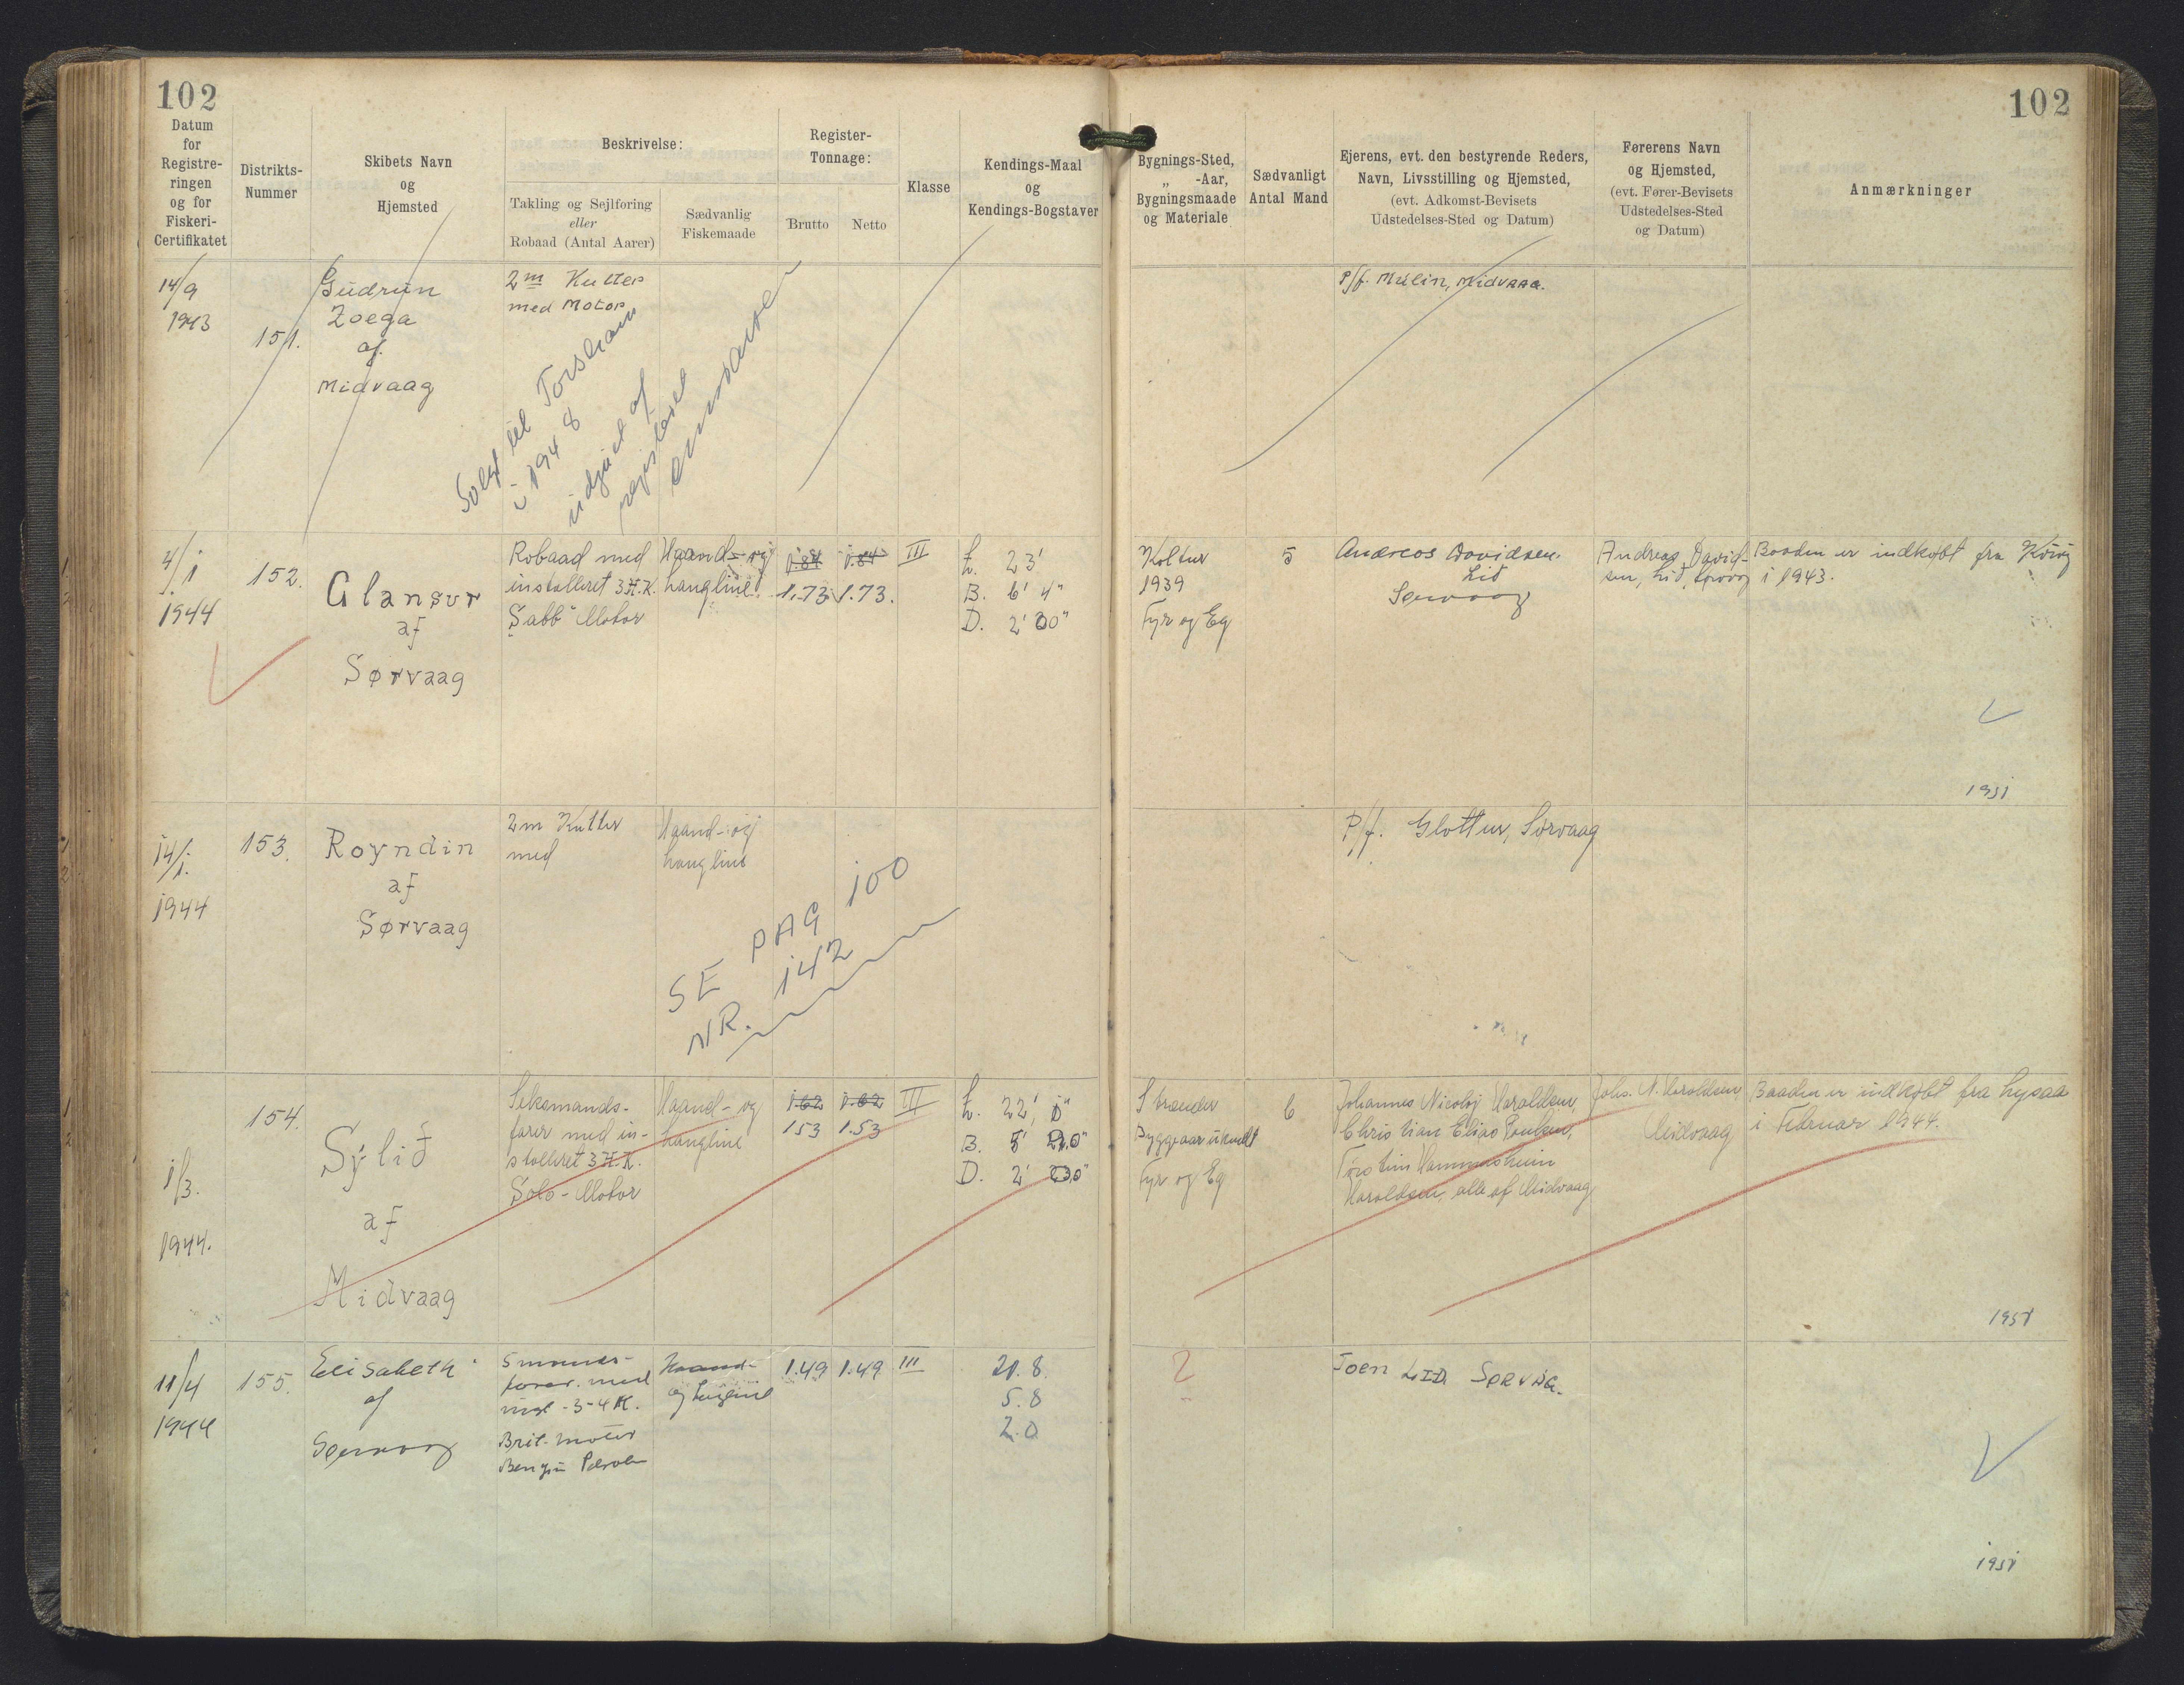 102
102
Datum
for
Registre-
ringen
og for
Fiskeri-
Certifikatet
Distrikts-
Nummer
Skibets Navn
og
Hjemsted
Beskrivelse:
Takling og Sejlføring
eller
Robaad (Antal Aarer)
Sædvanlig
Fiskemaade
Register-
Tonnage:
Brutto
Netto
Klasse
Kendings-Maal
og
Kendings-Bogstaver
Bygnings-Sted,
„ -Aar,
Bygningsmaade
og Materiale
Sædvanligt
Antal Mand
Ejerens, evt. den bestyrende Reders,
Navn, Livsstilling og Hjemsted,
(evt. Adkomst-Bevisets
Udstedelses-Sted og Datum)
Førerens Navn
og Hjemsted,
(evt. Fører-Bevisets
Udstedelses-Sted
og Datum)
Anmærkninger
14/9
1943
151.
Gudrun
Zoega
af
Midvaag
2m Kutter
med Motor
Solgt til Torshavn
i 1948
udgaaet af
registeret
P/f. Mulin, Midvaag.
4/1
1944
152.
Glansur
af
Sørvaag
Robaad med
installeret 3 H.K.
"Sabb" Motor
Haand- og
hangline
1.84 1.84
1.73 1.73.
III
L. 23'
B. 6' 4"
D. 2' 00"
Koltur
1939
Fyr og Eg
5
Andreas Davidsen
Lid
Sørvaag
Andreas David-
sen, Lid, Sørvaag
Baaden er indkøbt fra
i 1943.
1951
14/1.
1944
153.
Royndin
af
Sørvaag
2m Kutter
med
Haand- og
hangline
SE PAG 100
NR. 142
P/f. Glottur, Sørvaag
1/3.
1944.
154.
Sýlið
af
Midvaag
Seksmands-
farer med in-
stalleret 3 H.K.
Solo-Motor
Haand- og
hangline
1.62 1.62
153 1.53
III
L. 22',
B. 5'
D. 2'
Strender
Byggeaar ukendt
Fyr og Eg
6
Johannes Nicolaj Haraldsen,
Christian Elias Poulsen,
Torstein Hammersheim
Haraldsen, alle af Midvaag
Johs. N. Haraldsen
Midvaag
Baaden er indkøbt fra Lysaa
i Februar 1944.
1951
11/4
1944
155.
Elisabeth
af
Sørvaag
5 mands-
farer. med
inst - 3-4 K.
Brit. motor
Haand-
og Langline
1.49 1.49
III
21.8.
5.8
2.0
?
Joen LID SØRVÁG.
1951